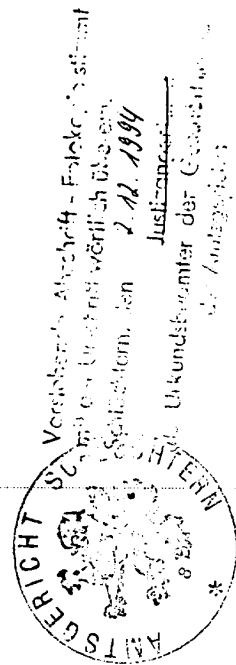 Vorstehende Abschrift - Fotokopie stimmt
mit der Urschrift wörtlich überein.
Schlüchtern, den 2.12.1994
Justizangestellte
Urkundsbeamter der Geschäftsstelle
des Amtsgerichts
AMTSGERICHT SCHLÜCHTERN *